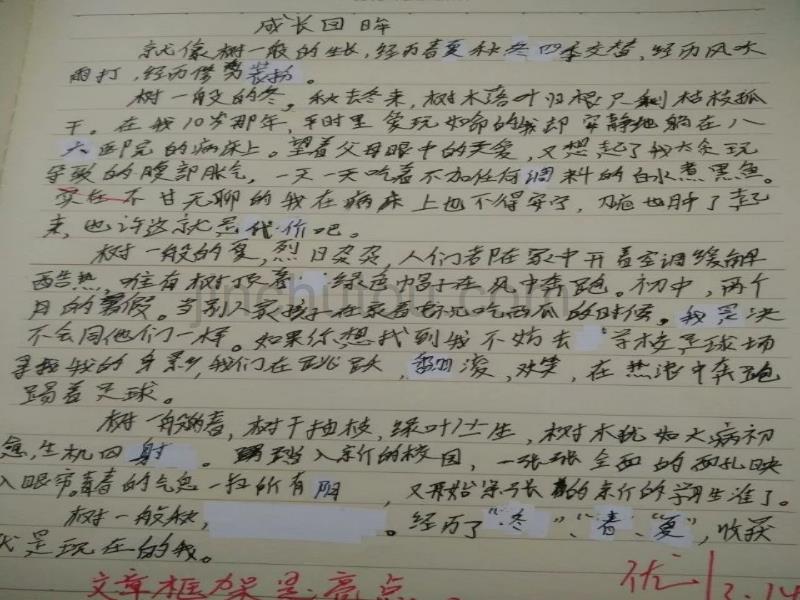 成长回眸
就像树一般的生长,经历春夏秋冬四季交替,经历风吹
雨打,经历借剪装扮。
树一般的冬。秋去冬来,树木落叶归根只剩枯枝孤
干。在我10岁那年,平时里爱玩如命的我却安静地躺在八
六医院的病床上。望着父母眼中的关爱,又想起了我大贪玩
导致的腹部胀气,一天一天吃着不加任何调料的白水煮黑鱼。
实在不甘无聊的我在病床上也不得安宁,脑也肿了起
来,也许这就是代价吧。
树一般的夏,烈日炎炎,人们都在家中开着空调缓解
酷热,唯有树顶着绿色帽子在风中奔跑。初中,两个
月的暑假。当别人家孩子在家看电视吃西瓜的时候。我是决
不会同他们一样。如果你想找到我不妨去学校足球场
寻找我的身影,我们在跳跃,翻滚,欢笑,在热浪中奔跑
踢着足球。
树一般的春,树干抽枝,绿叶生,树木犹如大病初
愈,生机四射。踏入新的校园,一张张全新的面孔映
入眼帘。青春的气息一扫所有阴,又开始了新的学习生涯了。
树一般秋,。经历了“冬”、“春”、“夏”,收获
我是现在的我。
文章框架是亮点。
优 12.14